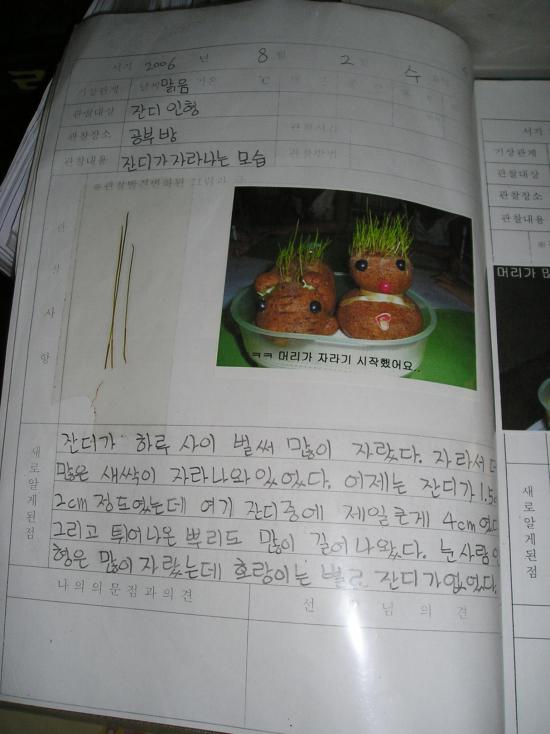 서기 2006 년 8 월 2 일 수
기상관계 날씨 맑음 기온 ℃
관찰대상 잔디 인형
관찰장소 공부방 관찰시간
관찰내용 잔디가 자라나는 모습 관찰방법
관찰사항
ㅋㅋ 머리가 자라기 시작했어요..
새로알게된점
잔디가 하루 사이 벌써 많이 자랐다. 자라서 더
많은 새싹이 자라나와있었다. 어제는 잔디가 1.5
2cm 정도였는데 여기 잔디중에 제일 큰게 4cm였다
그리고 튀어나온 뿌리도 많이 길어나왔다. 눈사람인
형은 많이 자랐는데 호랑이는 별로 잔디가 없었다.
나의의문점과의견
선 님의견
서기
기상관계
관찰대상
관찰장소
관찰내용
머리가 많
새로알게된점